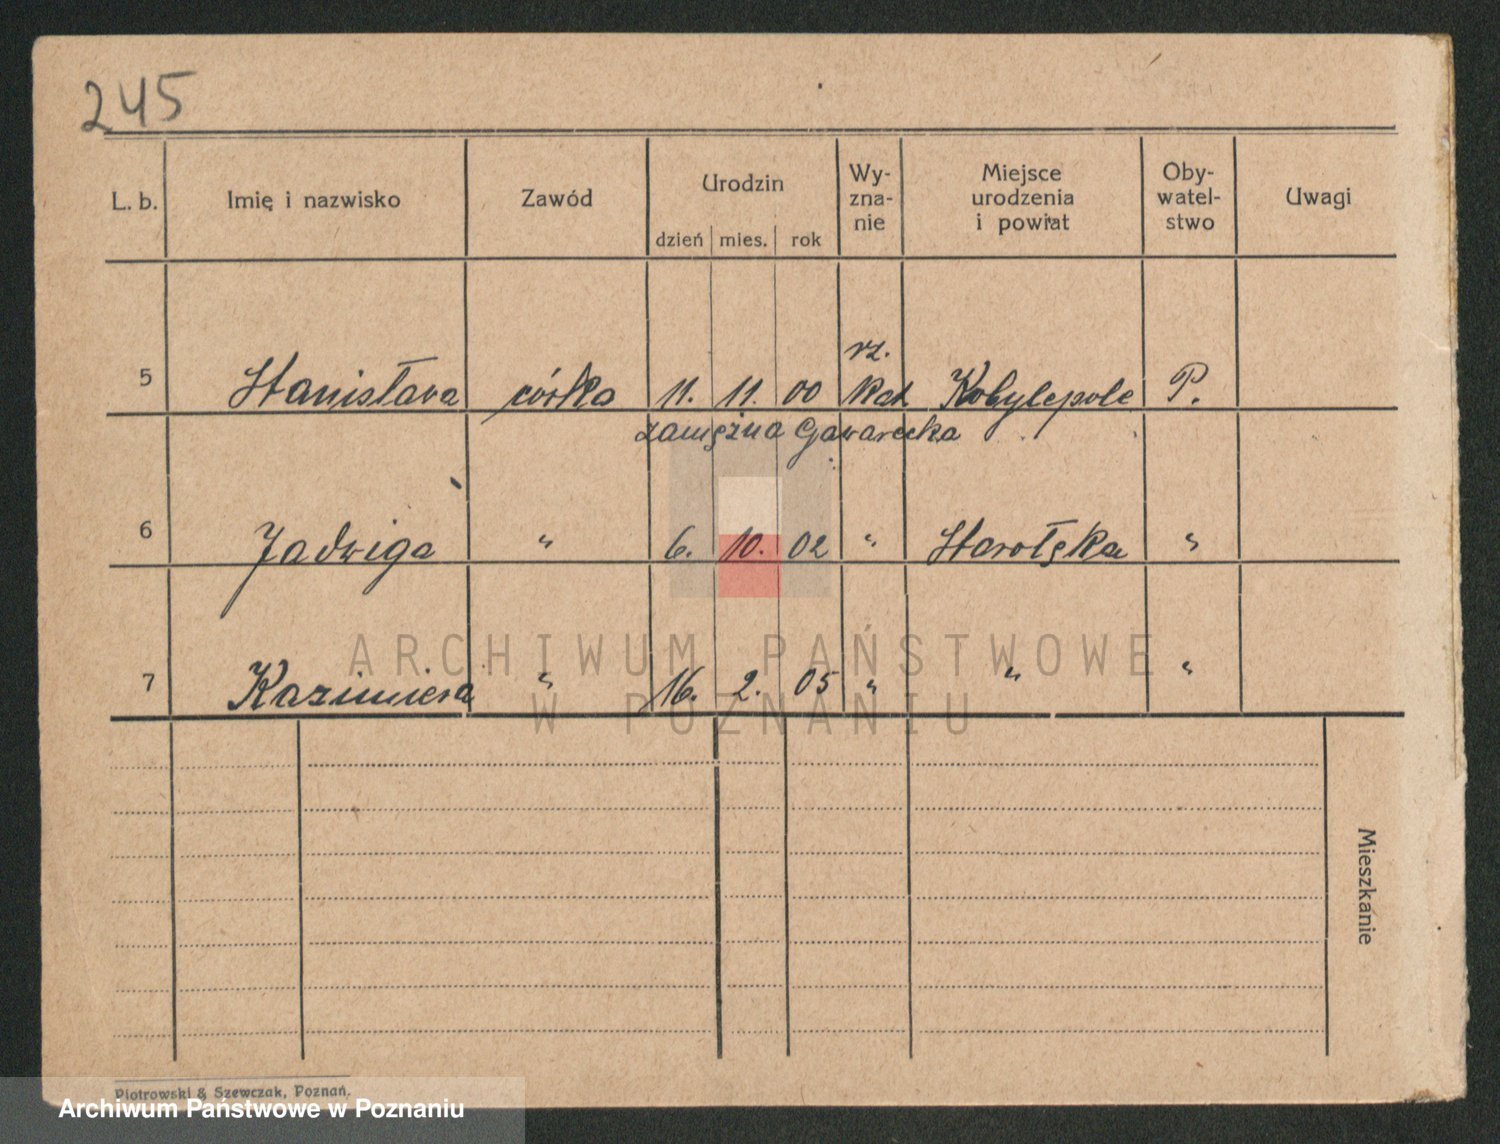 245
L. b. Imię i nazwisko Zawód Urodzin dzień mies. rok Wy-zna-nie Miejsce urodzenia i powiat Oby-watel-stwo Uwagi
rz.
5 Stanisława córka 11. 11. 00 kat. Kobylepole P.
zamężna Gawarecka
6 Jadwiga " 6. 10. 02 " Starołęka "
7 Kazimiera " 16. 2. 05 " " "
ARCHIWUM PAŃSTWOWE
W POZNANIU
Mieszkanie
Piotrowski & Szewczak, Poznań.
Archiwum Państwowe w Poznaniu